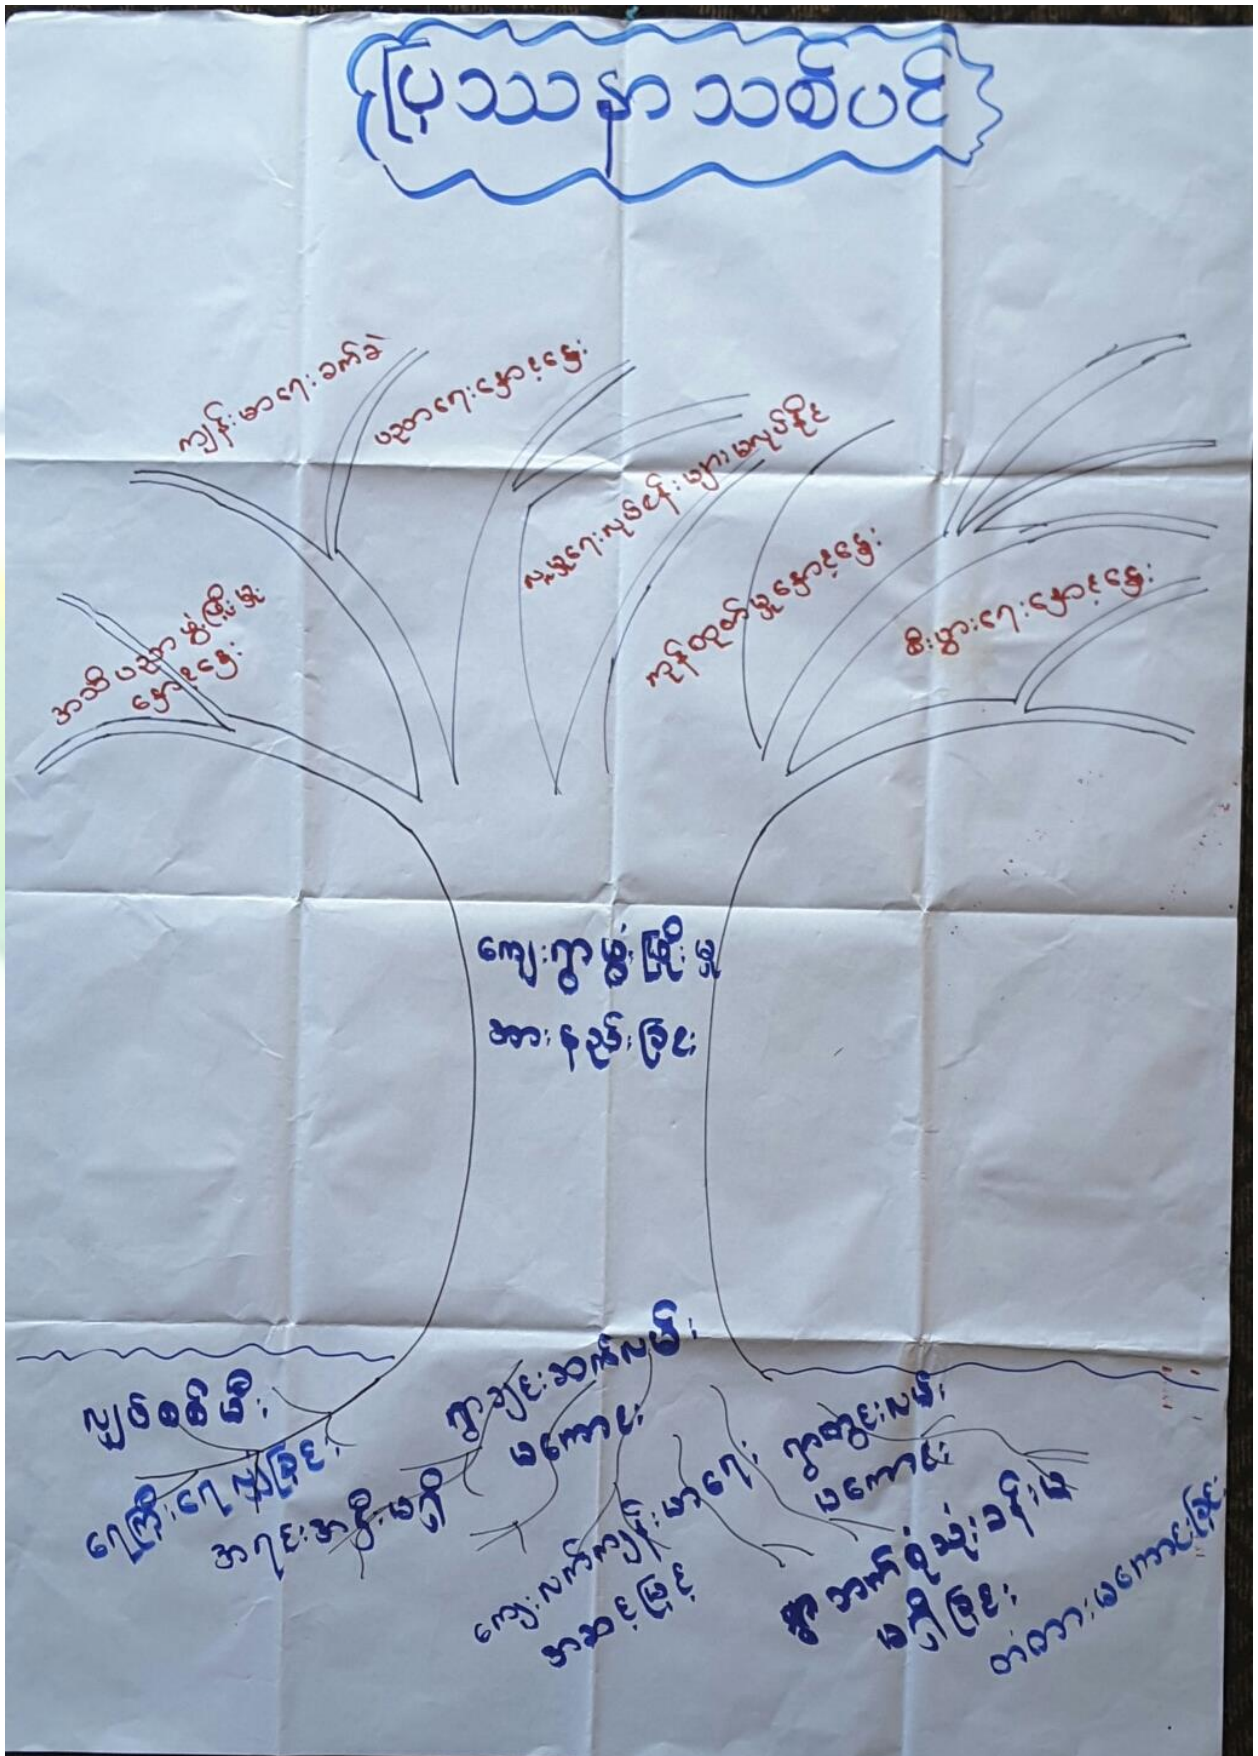 ပြဿနာသစ်ပင်
ကျန်းမာရေးခက်ခဲ
ပညာရေးနှောင့်နှေး
လူမှုရေးလုပ်ငန်းများမလုပ်နိုင်
ကုန်ထုတ်မှုနှောင့်နှေး
စီးပွားရေးနှောင့်နှေး
အသိပညာဖွံ့ဖြိုးမှု
နှောင့်နှေး
ကျေးရွာဖွံ့ဖြိုးမှု
အားနည်းခြင်း
လျှပ်စစ်မီး
ရေကြီးရေလျှံခြင်း
အရင်းအနှီးမရှိ
ရွာချင်းဆက်လမ်း
မကောင်း
ကျေးလက်ကျန်းမာရေး
အဆင့်မြှင့်
ရွာတွင်းလမ်း
မကောင်း
ရွာဘက်စုံသုံးခန်းမ
မရှိခြင်း
တံတားမကောင်းခြင်း